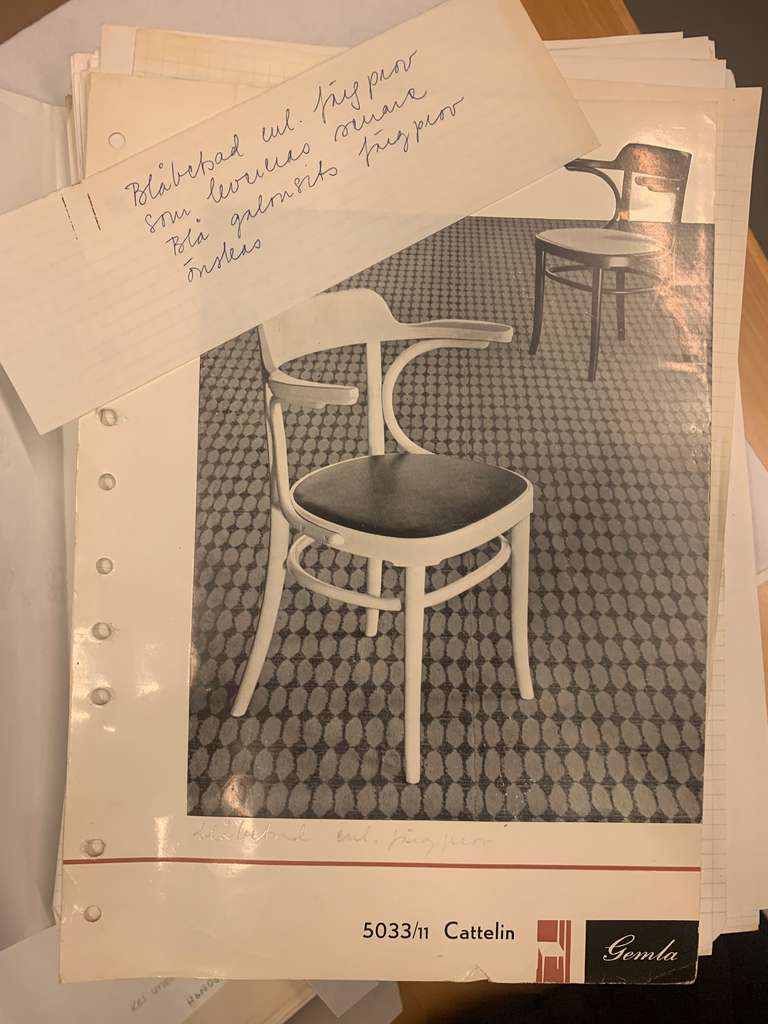 Blåbetsad enl. färgprov
som levereras senare
Blå galonsits färgprov
önskas
Blåbetsad enl. färgprov
5033/11 Cattelin
Gemla